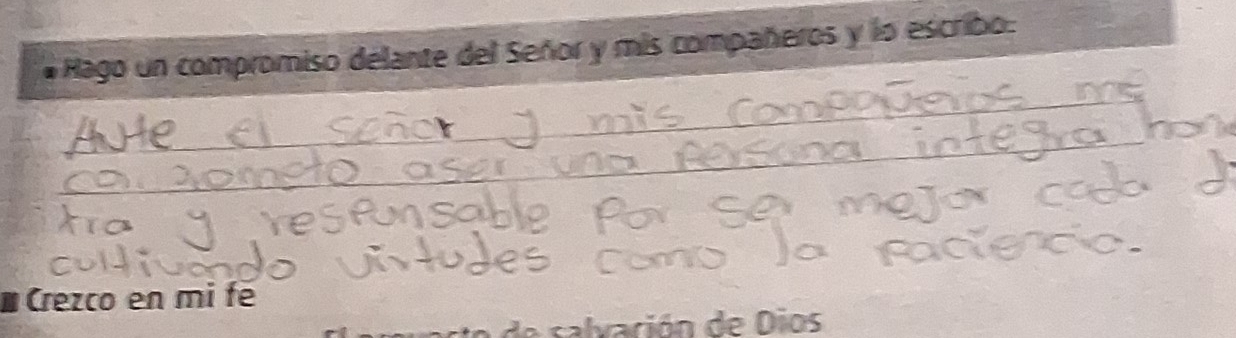 Hago un compromiso delante del Señor y mis compañeros y lo escribo:
Ante el señor y mis compañeros me
aser una persona integra hon
tra y responsable por ser mejor cada di
cultivando virtudes como la paciencia.
Crezco en mi fe
de salvación de Dios